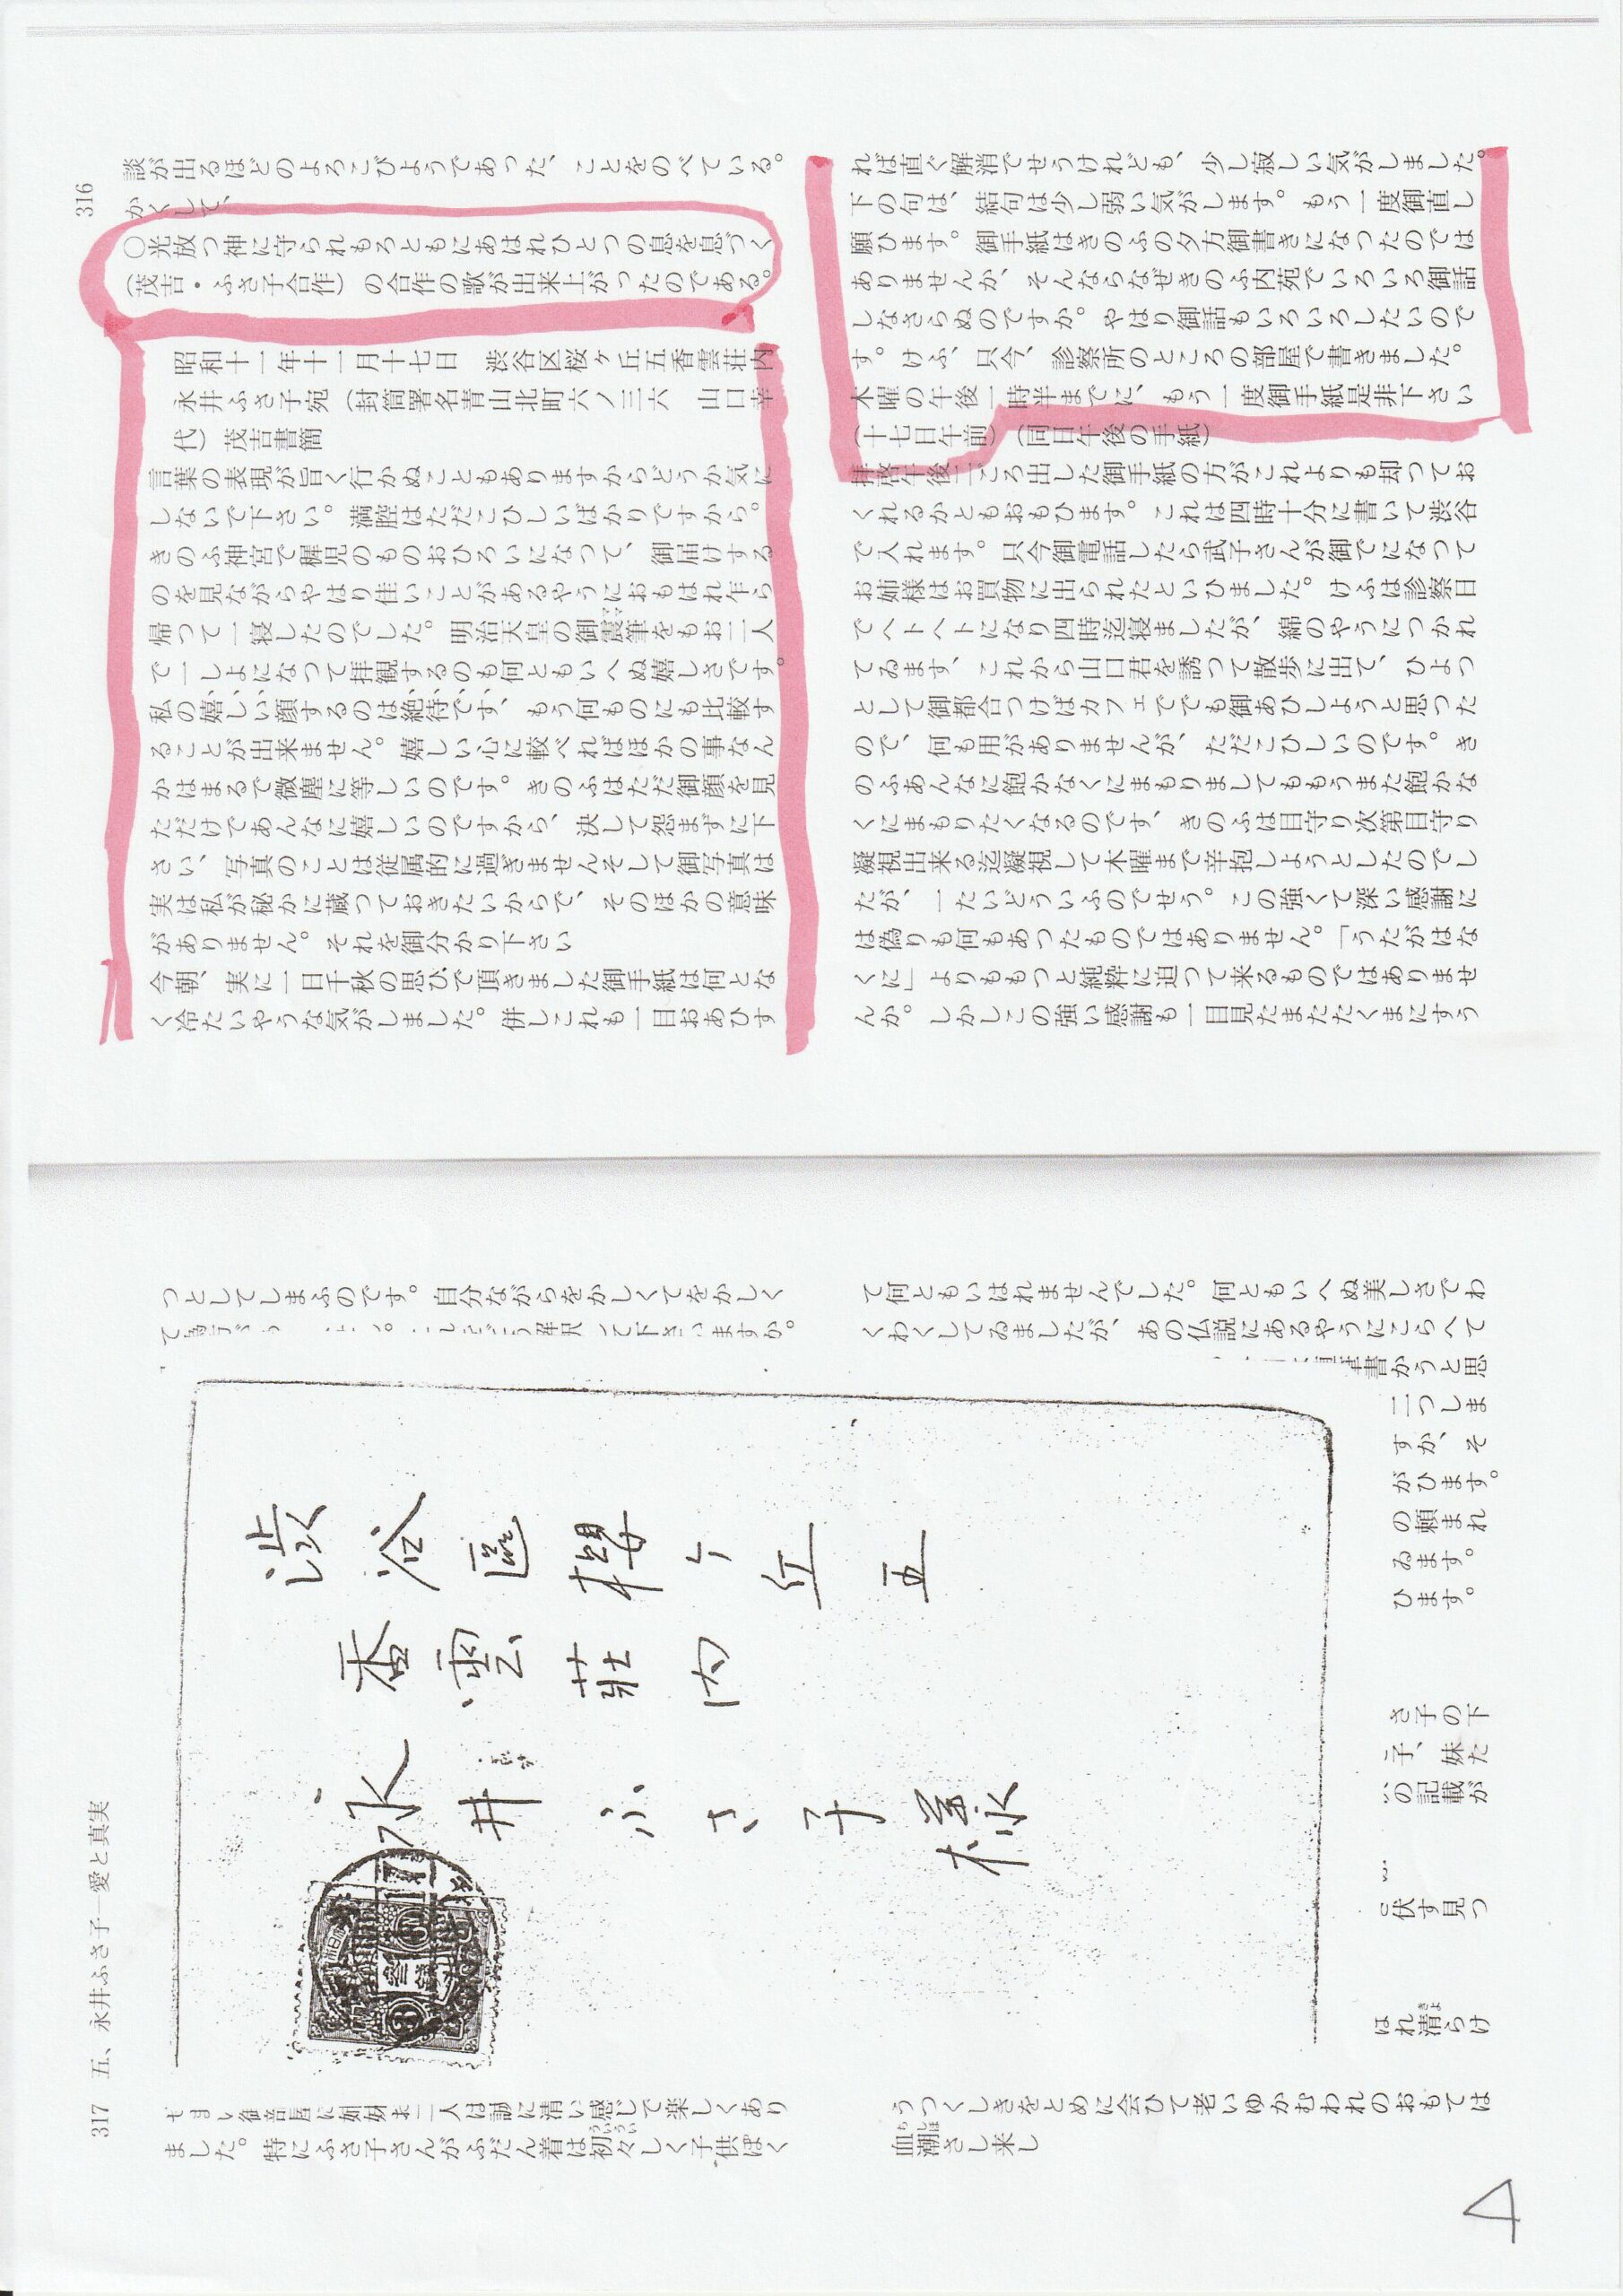 316
談が出るほどのよろこびようであった、ことをのべている。
かくして、
○光放つ神に守られもろともにあはれひとつの息を息づく
(茂吉・ふさ子合作)の合作の歌が出来上がったのである。
昭和十一年十一月十七日　渋谷区桜ヶ丘五香雲荘内
永井ふさ子宛(封筒署名青山北町六ノ三六　山口幸
代)茂吉書簡
言葉の表現が旨く行かぬこともありますからどうか気に
しないで下さい。満腔はただこひしいばかりですから。
きのふ神宮で稚児のものおひろいになって、御届けする
のを見ながらやはり佳いことがあるやうにおもはれ乍ら
帰つて一寝したのでした。明治天皇の御宸筆をもお二人
で一しよになつて拝観するのも何ともいへぬ嬉しさです。
私の嬉しい顔するのは絶待です、もう何ものにも比較す
ることが出来ません。嬉しい心に較べればほかの事なん
かはまるで微塵に等しいのです。きのふはただ御顔を見
ただけであんなに嬉しいのですから、決して怨まずに下
さい、写真のことは従属的に過ぎませんそして御写真は
実は私が秘かに蔵つておきたいからで、そのほかの意味
がありません。それを御分かり下さい
今朝、実に一日千秋の思ひで頂きました御手紙は何とな
く冷たいやうな気がしました。併しこれも一目おあひす
れば直ぐ解消でせうけれども、少し寂しい気がしました。
下の句は、結句は少し弱い気がします。もう一度御直し
願ひます。御手紙はきのふの夕方御書きになつたのでは
ありませんか、そんならなぜきのふ内苑でいろいろ御話
しなさらぬのですか。やはり御話もいろいろしたいので
す。けふ、只今、診察所のところの部屋で書きました。
木曜の午後一時半までに、もう一度御手紙是非下さい
(十七日午前)(同日午後の手紙)
拝啓午後二ころ出した御手紙の方がこれよりも却つてお
くれるかともおもひます。これは四時十分に書いて渋谷
で入れます。只今御電話したら武子さんが御でになつて
お姉様はお買物に出られたといひました。けふは診察日
でヘトヘトになり四時迄寝ましたが、綿のやうにつかれ
てゐます、これから山口君を誘つて散歩に出て、ひよつ
として御都合つけばカフェででも御あひしようと思つた
ので、何も用がありませんが、ただこひしいのです。き
のふあんなに飽かなくにまもりましてももうまた飽かな
くにまもりたくなるのです、きのふは目守り次第目守り
凝視出来る迄凝視して木曜まで辛抱しようとしたのでし
たが、一たいどういふのでせう。この強くて深い感謝に
は偽りも何もあつたものではありません。「うたがはな
くに」よりももつと純粋に迫つて来るものではありませ
んか。しかしこの強い感謝も一目見たまたたくまにすう
317　五、永井ふさ子―愛と真実
つとしてしまふのです。自分ながらをかしくてをかしく
下さいますか。
澁谷區櫻ヶ丘五
香雲莊内
永井ふさ子樣
御部屋に姉妹お二人は誠に清い感じで楽しくあり
ました。特にふさ子さんがふだん着は初々しく子供ぽく
て何ともいはれませんでした。何ともいへぬ美しさでわ
くわくしてゐましたが、あの仏説にあるやうにこらへて
書かうと思
二つしま
すか、そ
がひます。
の頼まれ
ゐます。
ひます。
さ子の下
子、妹た
の記載が
伏す見つ
はれ清らけ
うつくしきをとめに会ひて老いゆかむわれのおもては
血潮さし来し
4